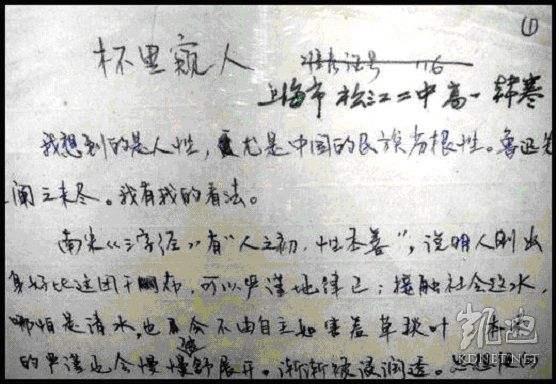 ①
杯里窥人
准考证号 116
上海市松江二中高一韩寒
我想到的是人性,尤是中国的民族劣根性。鲁迅先
阐之未尽。我有我的看法。
南宋《三字经》有"人之初,性本善",说明人刚出
身好比这团干布,可以严谨地律己;接触社会这水,
哪怕是清水,也会不由自主如害羞草叶
的严谨也会慢慢舒展开。渐渐被浸润透。
凯迪
KDNET.NET